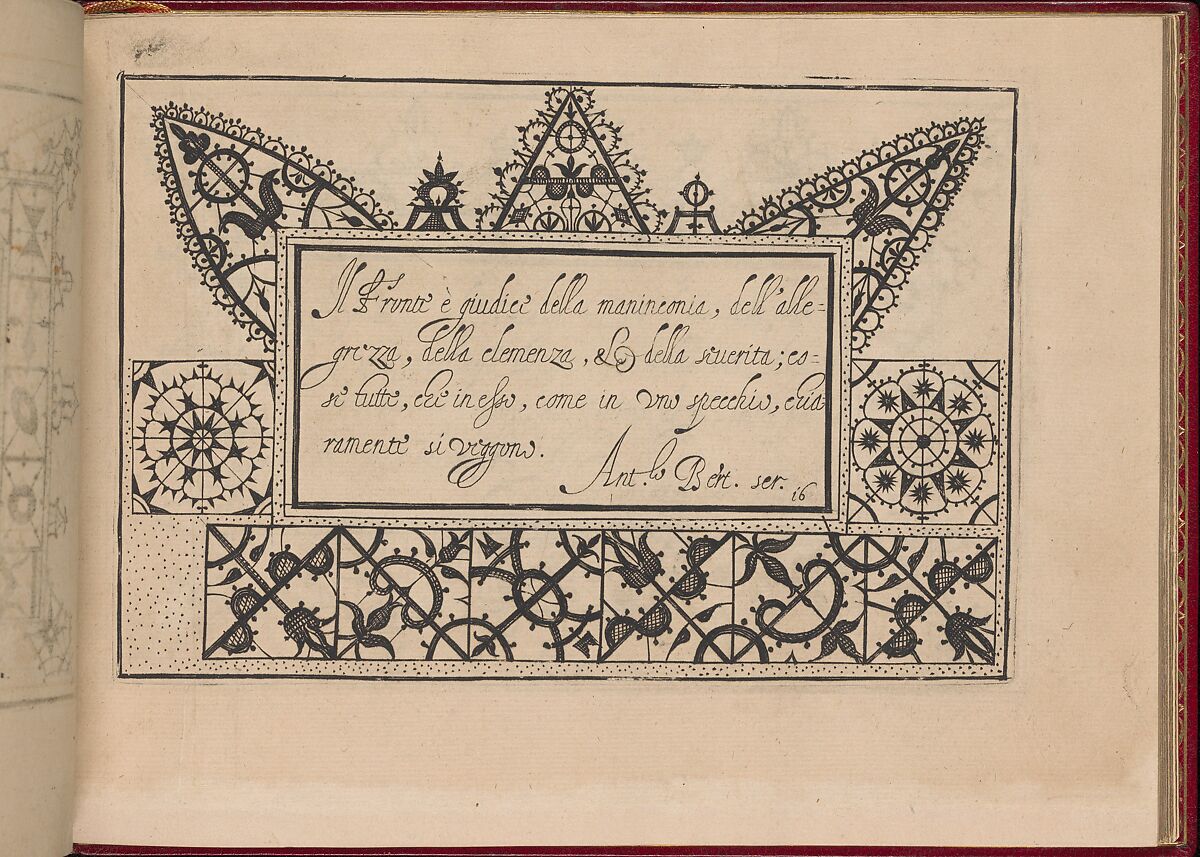 Il Fronte è giudice della maninconia, dell'alle-
grezza, della clemenza, & della seuerita; co-
se tutte, che in esso, come in vno specchio, chia
ramente si veggono.
Ant.lo Bert. scr. 16